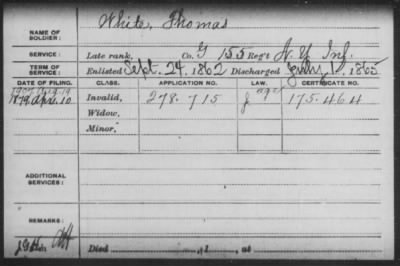 NAME OF SOLDIER: White, Thomas
SERVICE: Late rank, Co. G 155 Reg't N.Y. Inf.
TERM OF SERVICE: Enlisted Sept. 24, 1862 Discharged 1865
DATE OF FILING. CLASS. APPLICATION NO. LAW. CERTIFICATE NO.
1907 Aug. 19 age
1879 Apr. 10 Invalid, 278.715 175.464
Widow,
Minor,
ADDITIONAL SERVICES:
REMARKS:
Died , 1 , at